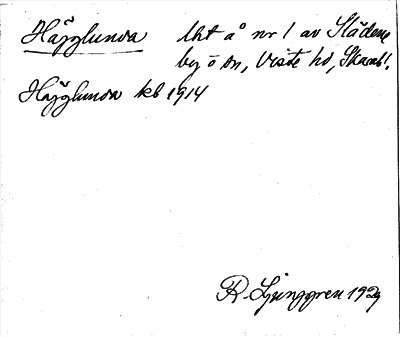 Häggluna lht å nr 1 av Slädene
by o sn, Viste hd, Skarab l.
Häggluna kb 1914
R Ljunggren 1929